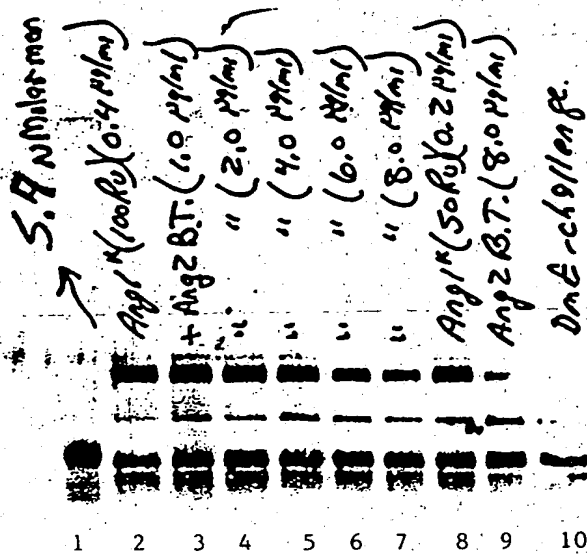 5.9 nMolar mon
Ang1* (100RU)(0.4 µg/ml)
+ Ang2 B.T. (1.0 µg/ml)
" " (2.0 µg/ml)
" " (4.0 µg/ml)
" " (6.0 µg/ml)
" " (8.0 µg/ml)
Ang1* (50RU)(0.2 µg/ml)
Ang2 B.T. (8.0 µg/ml)
DmE-challenge.
1 2 3 4 5 6 7 8 9 10